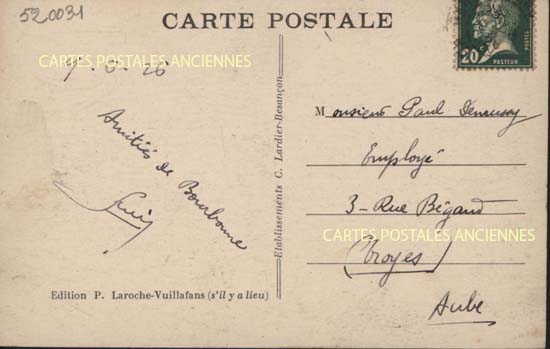 520031
CARTE POSTALE
CARTES POSTALES ANCIENNES
20
POSTES
PASTEUR
Amitiés de Bourbonne
Etablissements C. Lardier-Besançon
Monsieur Paul
Employé
3 - Rue Bégand
CARTES POSTALES ANCIENNES
(Troyes)
Aube
Edition P. Laroche-Vuillafans (s'il y a lieu)